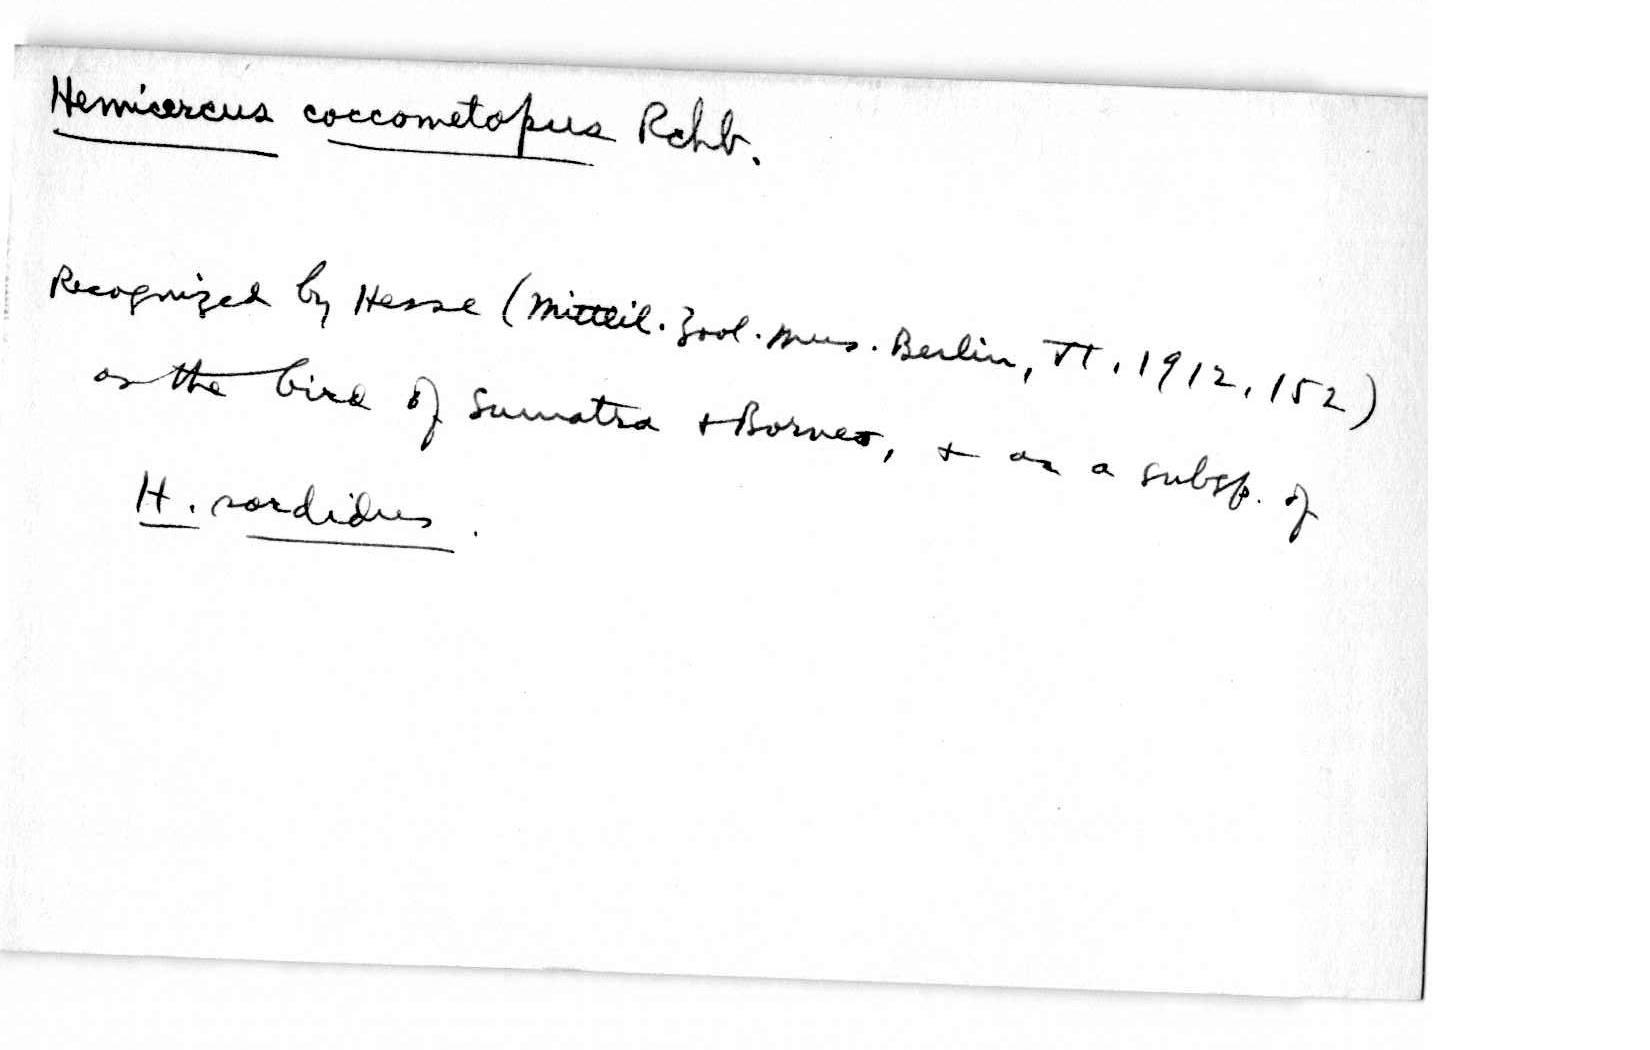 Hemicercus coccometopus Rchb.
Recognized by Hesse (Mitteil. Zool. Mus. Berlin, VI, 1912, 152)
as the bird of Sumatra + Borneo, + as a subsp. of
H. sordidus.